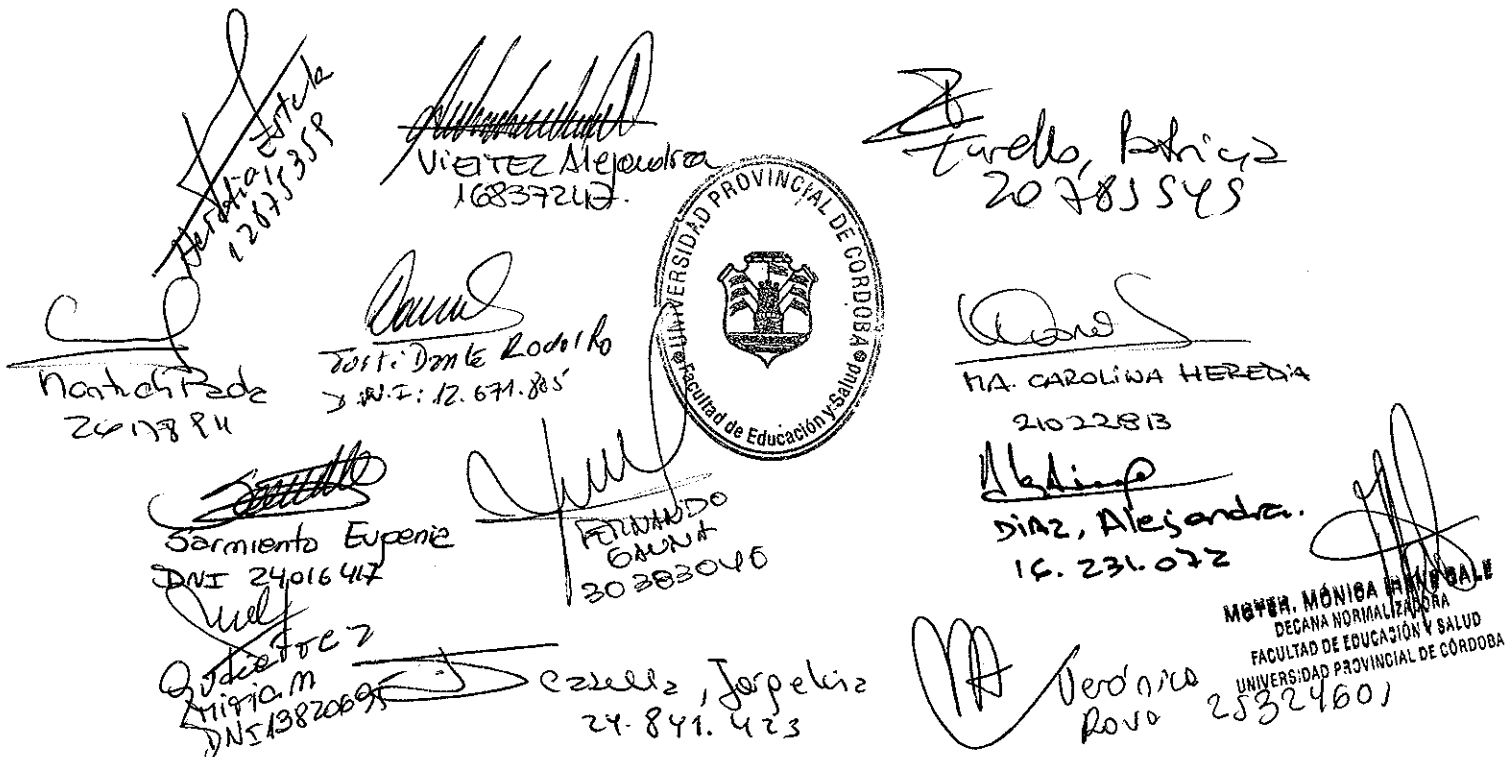 Heredia, Estela
VIEITEZ Alejandra
16837247.
Zurello, Patricia
20783545
UNIVERSIDAD PROVINCIAL DE CORDOBA
Facultad de Educación y Salud
Tosti Dante Rodolfo
D.N.I: 12.671.805
MA. CAROLINA HEREDIA
21022813
Sarmiento Eugenia
DNI 24016417
FERNANDO
GAUNA
30383046
DIAZ, Alejandra.
16.231.072
MGTER. MÓNICA
DECANA NORMALIZADORA
FACULTAD DE EDUCACIÓN Y SALUD
UNIVERSIDAD PROVINCIAL DE CÓRDOBA
Gutierrez
Miriam
DNI 13820695
Casella, Jorgelina
24.841.423
Verónica
Rovo 25324601